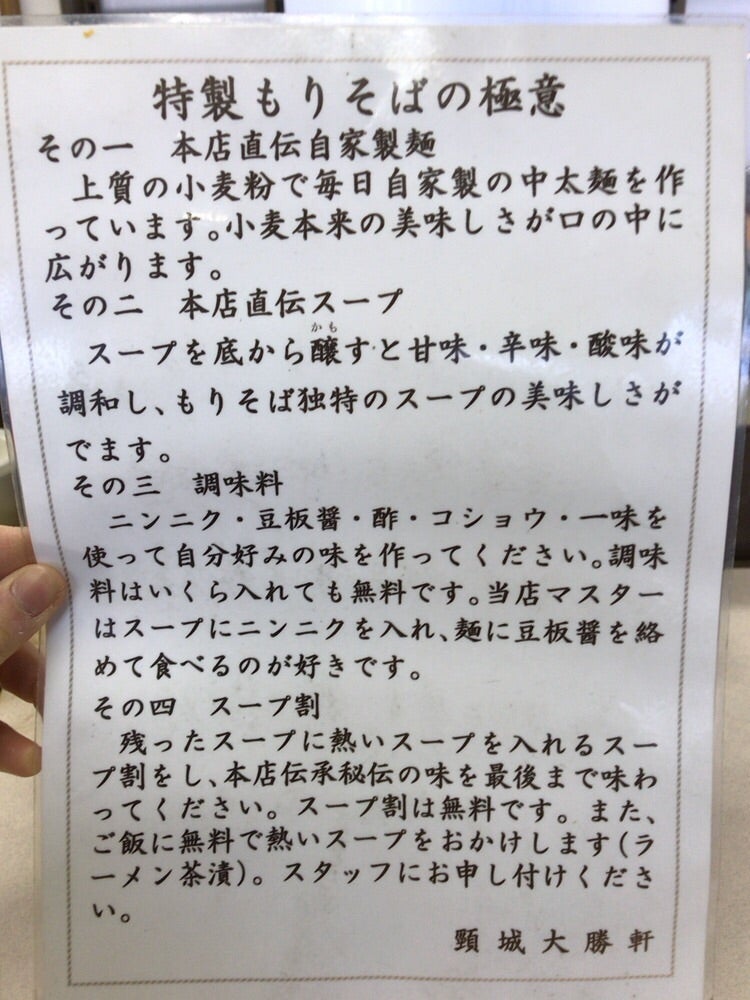 特製もりそばの極意
その一　本店直伝自家製麺
上質の小麦粉で毎日自家製の中太麺を作
っています。小麦本来の美味しさが口の中に
広がります。
その二　本店直伝スープ
かも
スープを底から醸すと甘味・辛味・酸味が
調和し、もりそば独特のスープの美味しさが
でます。
その三　調味料
ニンニク・豆板醤・酢・コショウ・一味を
使って自分好みの味を作ってください。調味
料はいくら入れても無料です。当店マスター
はスープにニンニクを入れ、麺に豆板醤を絡
めて食べるのが好きです。
その四　スープ割
残ったスープに熱いスープを入れるスー
プ割をし、本店伝承秘伝の味を最後まで味わ
ってください。スープ割は無料です。また、
ご飯に無料で熱いスープをおかけします(ラ
ーメン茶漬)。スタッフにお申し付けくださ
い。
頸城大勝軒